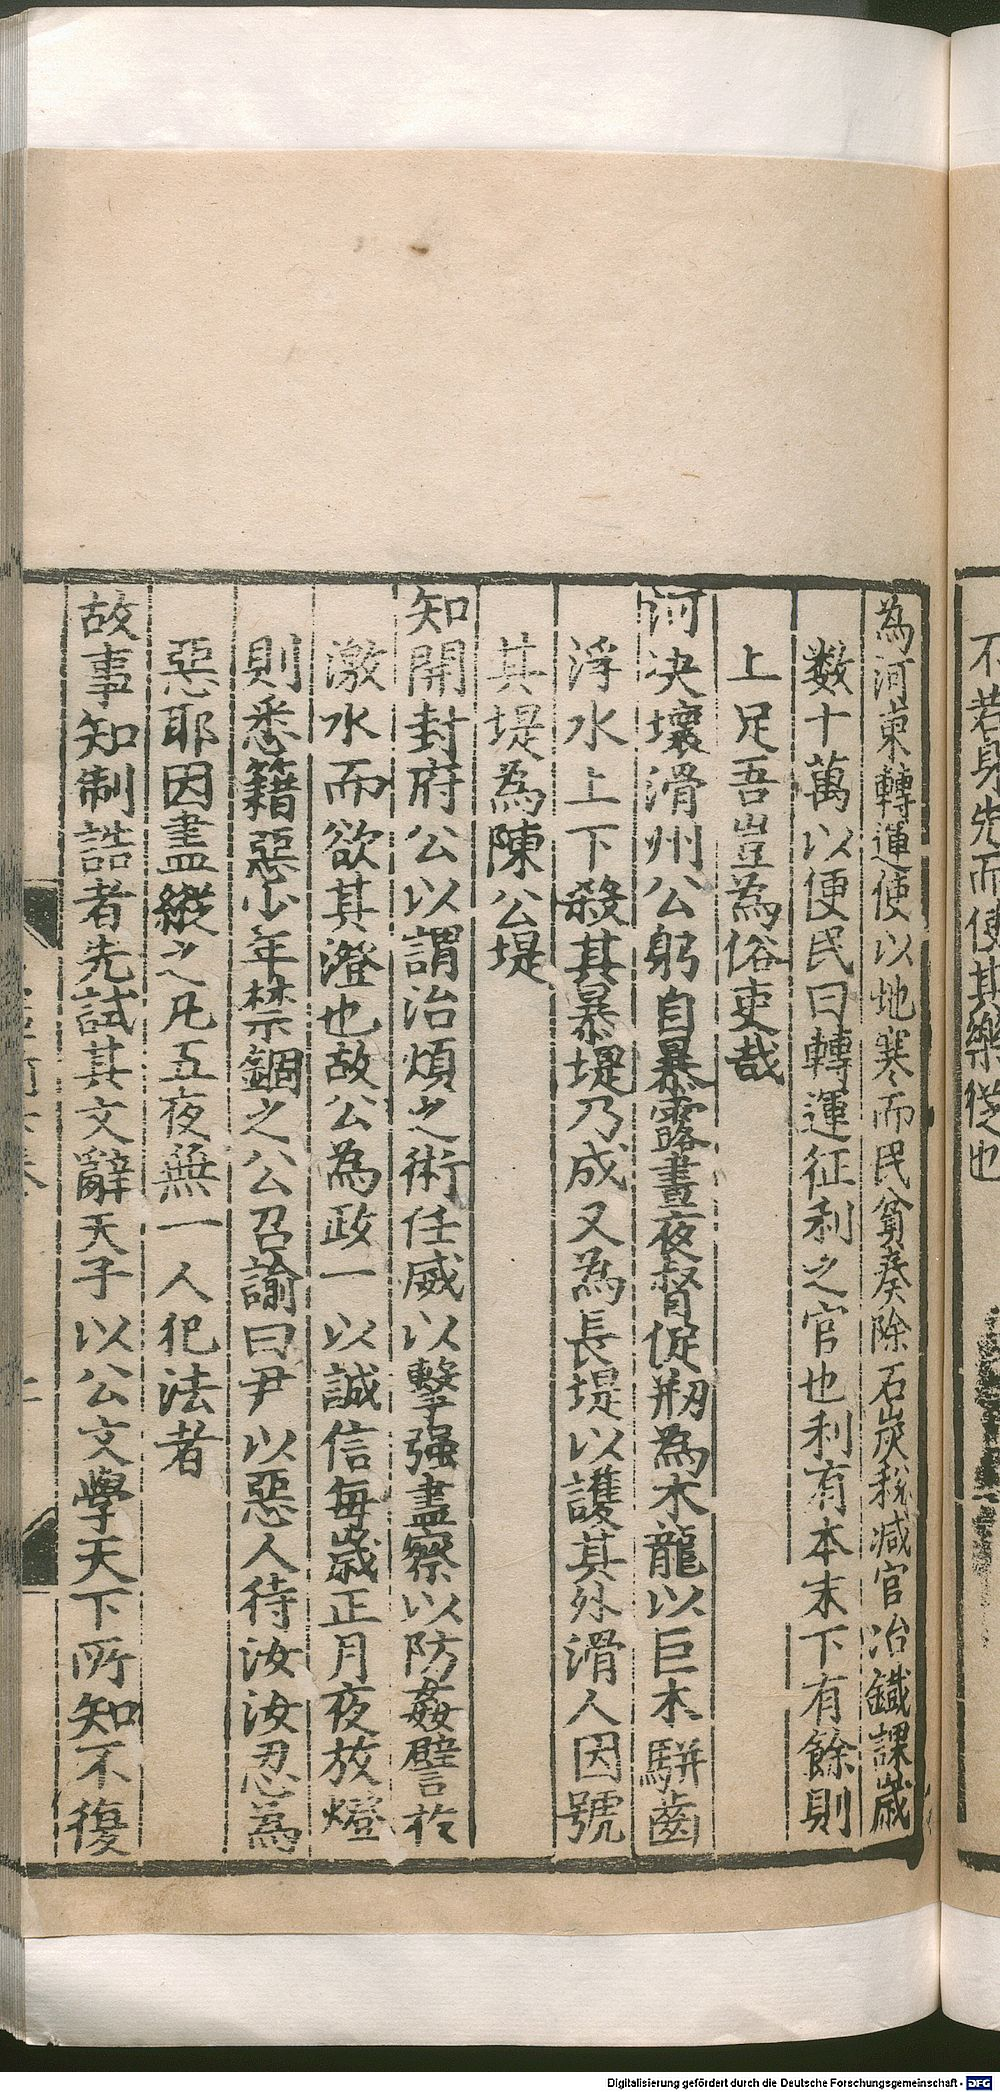 不若身先而使其樂從也
為河東轉運使以地寒而民貧奏除石炭稅减官冶鐵課歲
数十萬以便民曰轉運征利之官也利有本末下有餘則
上足吾豈為俗吏哉
河决壞滑州公躬自暴露晝夜督促剏為木龍以巨木駢齒
浮水上下殺其暴堤乃成又為長堤以護其外滑人因號
其堤為陳公堤
知開封府公以謂治煩之術任威以擊强盡察以防姦譬於
激水而欲其澄也故公為政一以誠信每歲正月夜放燈
則悉籍惡少年禁錮之公召諭曰尹以惡人待汝汝忍為
惡耶因盡縱之凡五夜無一人犯法者
故事知制誥者先試其文辭天子以公文學天下所知不復
Digitalisierung gefördert durch die Deutsche Forschungsgemeinschaft - DFG